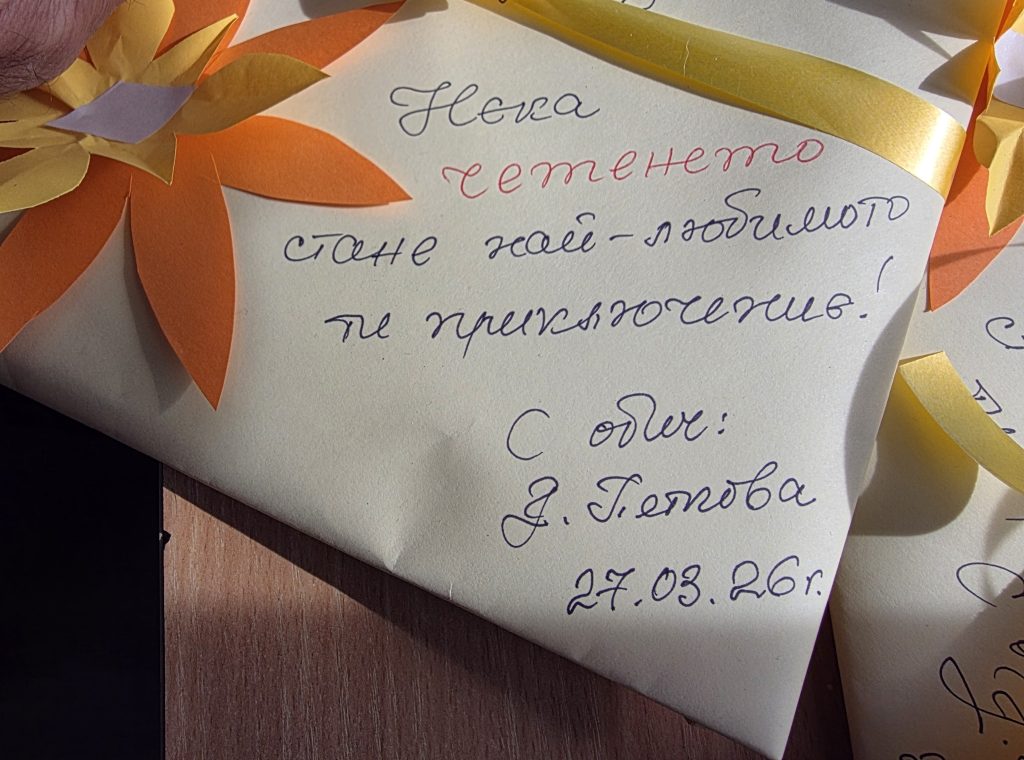 Нека
четенето
стане най-любимото
ти приключение!
С обич:
Д. Петкова
27.03.26г.